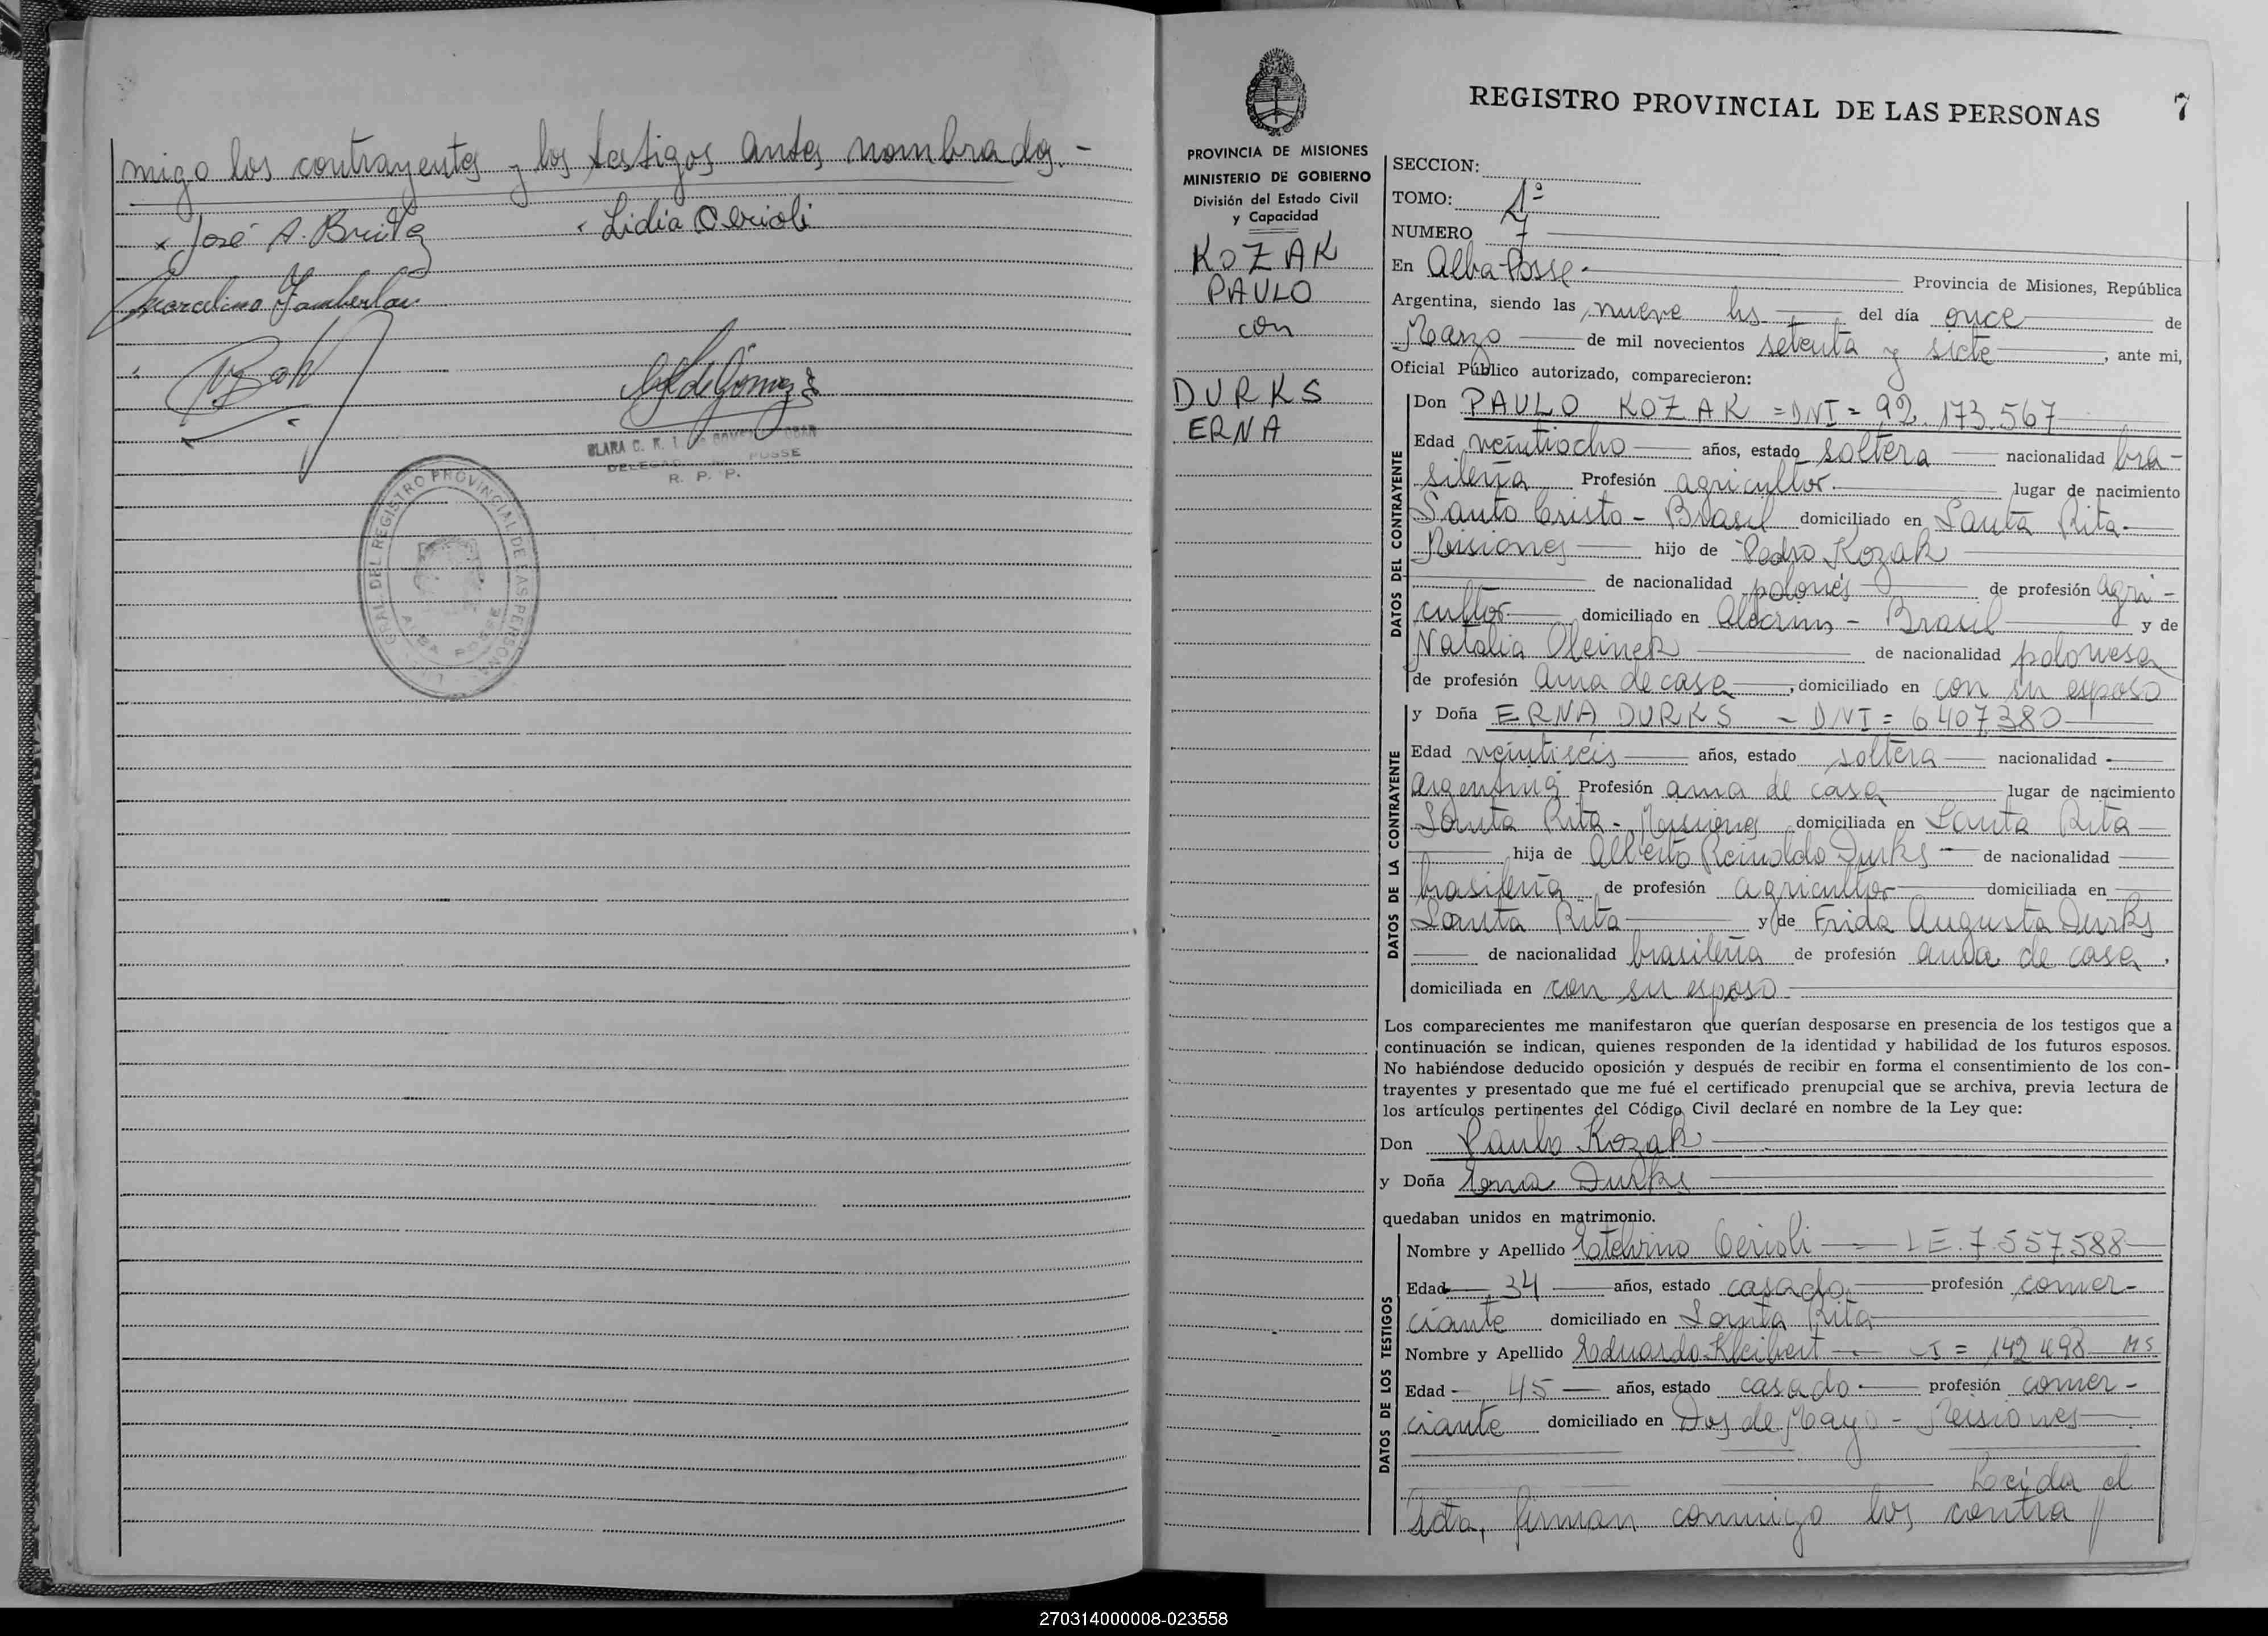 migo los contrayentes y los testigos antes nombrados.-
José A. Britez
Lidia Cerioli
Marcelino Tamberlan
CLARA C. K.
DELEGAD POSSE
R. P. P.
GRAL. DEL REGISTRO PROVINCIAL DE LAS PERSONAS
ALBA POSSE
PROVINCIA DE MISIONES
MINISTERIO DE GOBIERNO
División del Estado Civil
y Capacidad
KOZAK
PAULO
con
DURKS
ERNA
REGISTRO PROVINCIAL DE LAS PERSONAS 7
SECCION:
TOMO: 1º
NUMERO 7
En Alba Posse - Provincia de Misiones, República
Argentina, siendo las nueve hs del día once de
Marzo de mil novecientos setenta y siete, ante mi,
Oficial Público autorizado, comparecieron:
DATOS DEL CONTRAYENTE
Don PAULO KOZAK =DNI= 92.173.567
Edad veintiocho años, estado soltera nacionalidad bra-
sileña Profesión agricultor lugar de nacimiento
Santo Cristo - Brasil domiciliado en Santa Rita-
Misiones hijo de Pedro Kozak
de nacionalidad polonés de profesión agri-
cultor domiciliado en Alecrim - Brasil y de
Natalia Oleinek de nacionalidad polonesa
de profesión ama de casa, domiciliado en con su esposo
DATOS DE LA CONTRAYENTE
y Doña ERNA DURKS - DNI= 6.407.380
Edad veintiséis años, estado soltera nacionalidad
argentina Profesión ama de casa lugar de nacimiento
Santa Rita - Misiones domiciliada en Santa Rita
hija de Alberto Reinoldo Durks de nacionalidad
brasileña de profesión agricultor domiciliada en
Santa Rita y de Frida Augusta Durks
de nacionalidad brasileña de profesión ama de casa,
domiciliada en con su esposo
Los comparecientes me manifestaron que querían desposarse en presencia de los testigos que a
continuación se indican, quienes responden de la identidad y habilidad de los futuros esposos.
No habiéndose deducido oposición y después de recibir en forma el consentimiento de los con-
trayentes y presentado que me fué el certificado prenupcial que se archiva, previa lectura de
los artículos pertinentes del Código Civil declaré en nombre de la Ley que:
Don Paulo Kozak
y Doña Erna Durks
quedaban unidos en matrimonio.
DATOS DE LOS TESTIGOS
Nombre y Apellido Etelvino Cerioli - LE. 7.557.588
Edad 34 años, estado casado profesión comer-
ciante domiciliado en Santa Rita
Nombre y Apellido Eduardo Kleibert - CI = 142.498 MS
Edad - 45 - años, estado casado profesión comer-
ciante domiciliado en Dos de Mayo - Misiones
Leída el
Acta, firman conmigo los contra //
270314000008-023558